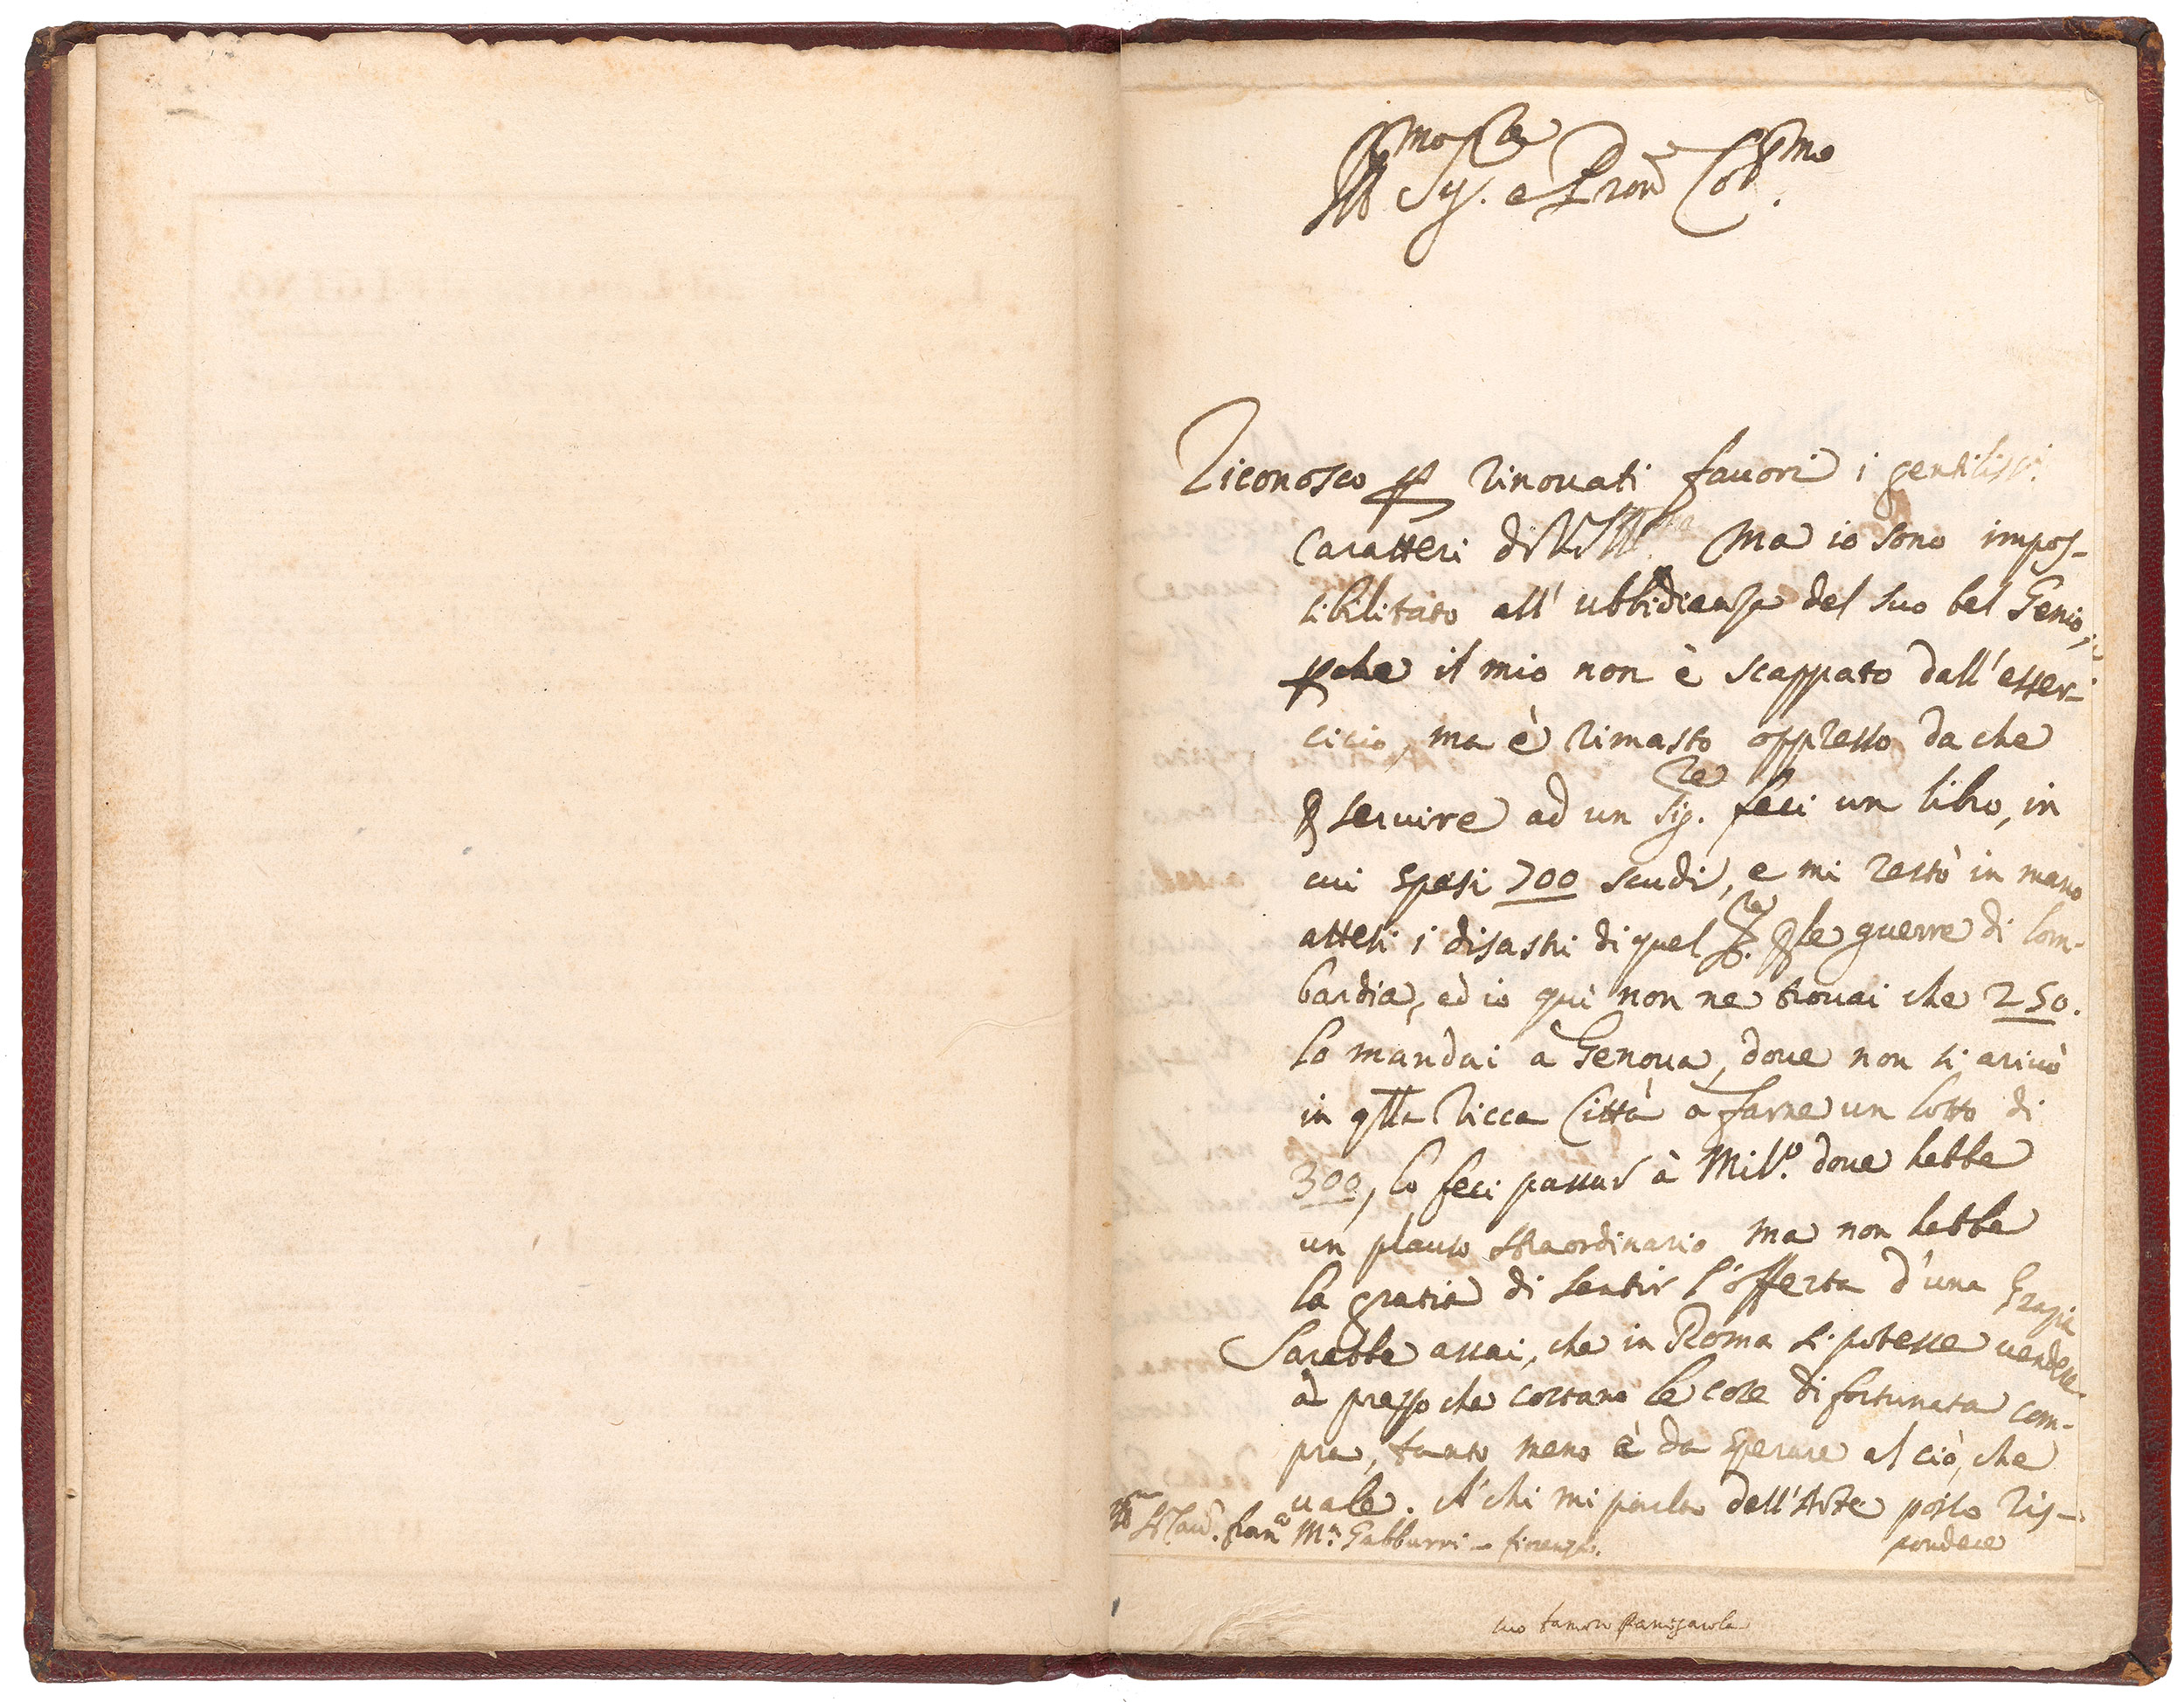 Ill.mo Sig.re e Pron Col.mo
Riconosco p rinouati fauori i gentiliss.i
Caratteri di VS Ill.ma Ma io sono impos-
sibilitato all' ubbidienza del suo bel Genio,
pche il mio non è scappato dall'esser-
cicio, ma è rimasto oppresso da che
p seruire ad un Sig.re feci un libro, in
cui spesi 700 scudi, e mi restò in mano
attesi i disastri di quel Sig.re p le guerre di Lom-
bardia, ed io quì non ne trouai che 250.
lo mandai a Genoua, doue non si ariuò
in qlla ricca Città a farne un lotto di
300, lo feci passar à Mil.o doue hebbe
un plauso straordinario ma non hebbe
la gratia di sentir l'offerta d'una Crazia
Sarebbe assai, che in Roma si potesse uendere
al prezzo che costano le cose di fortunata com-
pra, tanto meno è da sperare al ciò, che
uale. A' chi mi parla dell'Arte posso ris-
pondere
Ill.mo Sr Cau. Fran.co M.a Gabburri - firenze.